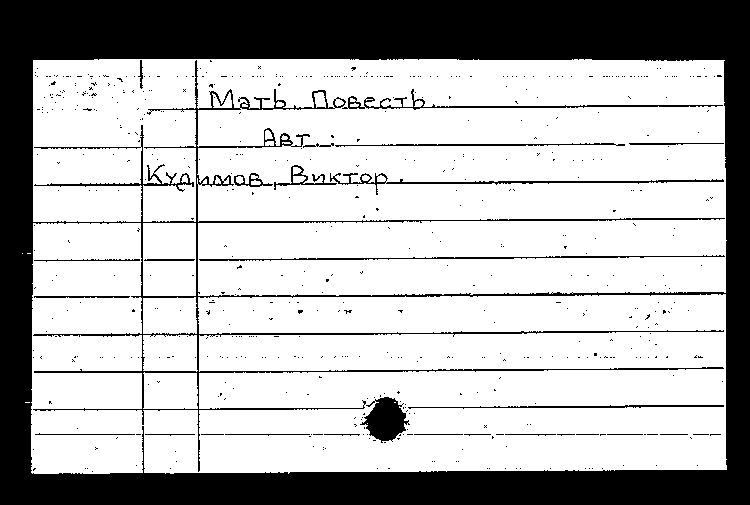 Мать. Повесть.
Авт.:
Кудимов, Виктор.